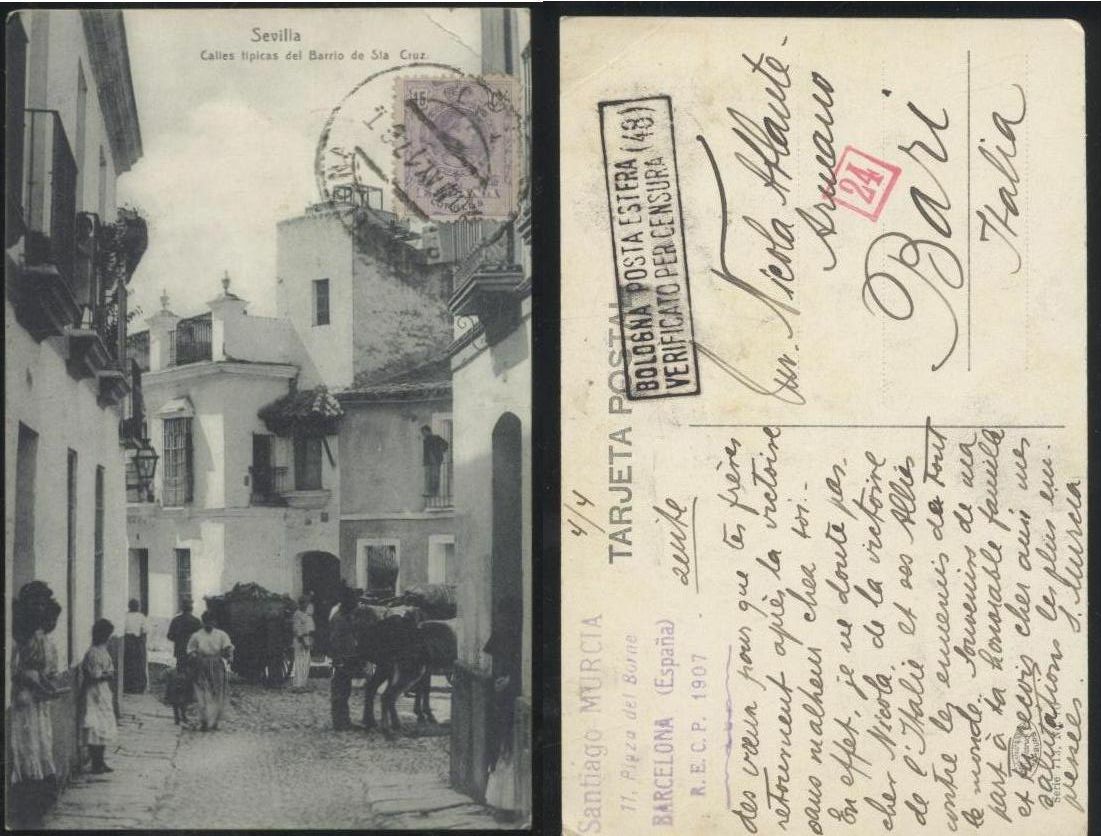 Sevilla
Calles típicas del Barrio de Sta Cruz.
15
TARJETA POSTAL
BOLOGNA POSTA ESTERA (48)
VERIFICATO PER CENSURA
24
Nicola Aflante
Armeano
Bari
Italia
4/4
suite
Santiago MURCIA
11, Plaza del Borne
BARCELONA (España)
R.E.C.P. 1907
des vœux pour que tes frères
retournent après la victoire
sans malheur chez toi.-
En effet, je ne doute pas
cher Nicola, de la victoire
de l'Italie et ses Allies
contre les ennemis de tout
le monde. Souvenirs de ma
part à ta honorable famille
et reçois cher ami mes
salutations les plus em-
pressés. S. Murcia